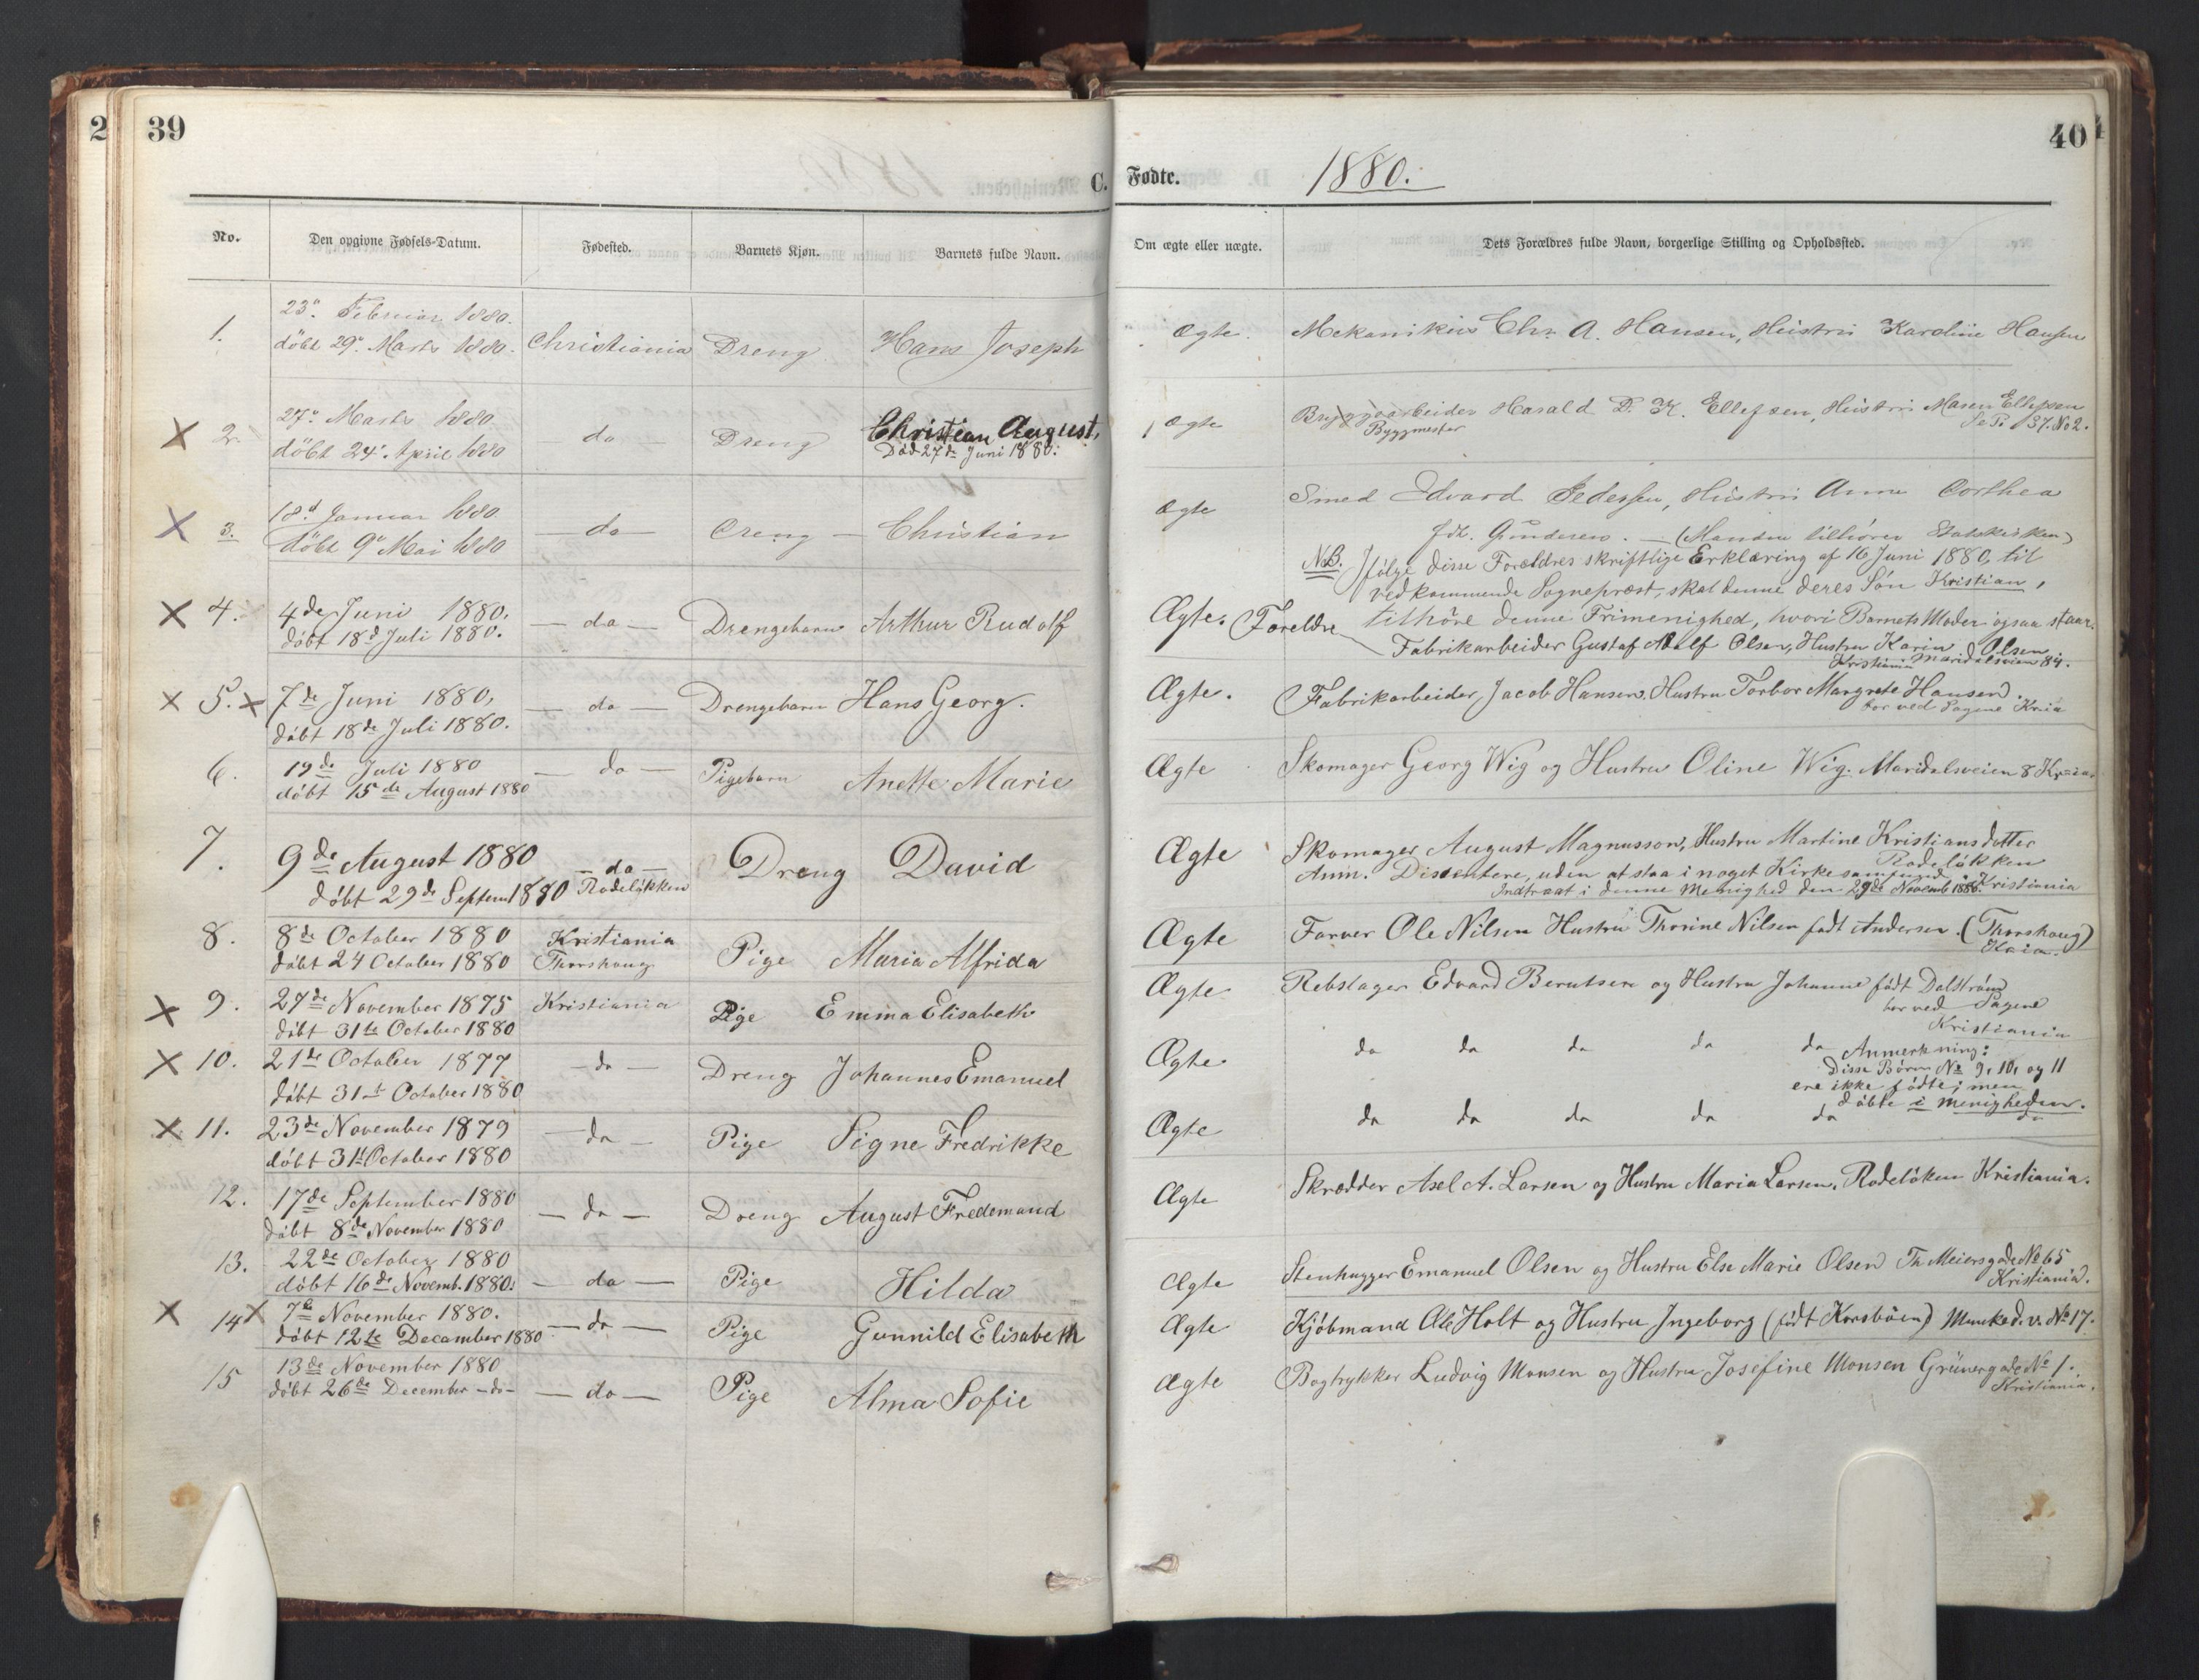 2
39
C.
No.
Den opgivne Fødsels-Datum.
Fødested.
Barnets Kjøn.
Barnets fulde Navn.
1.
23de Februar 1880.
döbt 29de Marts 1880.
Christiania
Dreng
Hans Joseph
2.
27de Marts 1880
döbt 24de April 1880
do
Dreng
Christian August.
Död 27de Juni 1880.
3.
18d Januar 1880
döbt 9de Mai 1880
— do —
Dreng —
Christian
4.
4de Juni 1880.
döbt 18d Juli 1880.
— do —
Drengebarn
Arthur Rudolf
5.
7de Juni 1880,
döbt 18de Juli 1880.
— do —
Drengebarn
Hans Georg.
6.
19de Juli 1880
döbt 15de August 1880
— do —
Pigebarn
Anette Marie
7.
9de August 1880
döbt 29de Septem 1880
— do —
Rodelökken
Dreng
David
8.
8de October 1880
döbt 24 October 1880
Kristiania
Thorshaug
Pige
Maria Alfrida
9.
27de November 1875
döbt 31te October 1880
Kristiania
Pige
Emma Elisabeth
10.
21de October 1877
döbt 31t October 1880
— do —
Dreng
Johannes Emanuel
11.
23de November 1879
döbt 31t October 1880
— do —
Pige
Signe Fredrikke
12.
17de September 1880
döbt 8de November 1880
— do —
Dreng
August Fredemand
13.
22de October 1880
döbt 16de Novemb. 1880.
— do —
Pige
Hilda
14
7de November 1880.
döbt 12te December 1880
— do —
Pige
Gunnild Elisabeth
15
13de November 1880
döbt 26de December -do-
— do —
Pige
Alma Sofie
40
Fødte.
1880.
Om ægte eller uægte.
Dets Forældres fulde Navn, borgerlige Stilling og Opholdssted.
Ægte.
Mekanikus Chr. A. Hansen, Hustru Karoline Hansen
Ægte
Bryggearbeider Harald D. K. Ellefsen, Hustru Maren Ellefsen
Byggmester
Se Pi 37. No 2.
Ægte
Smed Edvard Pedersen, Hustru Anne Dorthea
fdt. Gundersen. — (Manden tilhører Statskirken)
NB. Ifölge disse Forældres skriftlige Erklæring af 16 Juni 1880, til
vedkommende Sognepræst, skal denne deres Sön Kristian,
tilhöre denne Frimenighed, hvori Barnets Moder ogsaa staar.
Ægte.
Foreldre
Fabrikarbeider Gustaf Adolf Olsen, Hustru Karin Olsen.
Kristiania Maridalsveien 84.
Ægte.
Fabrikarbeider, Jacob Hansen, Hustru Torbor Margrete Hansen.
bor ved Sagene Kria
Ægte
Skomager Georg Wig og Hustru Oline Wig. Maridalsveien 8 Kr=ia
Ægte
Skomager August Magnusson, Hustru Martine Kristiansdatter
Rodelökken
Anm. Dissentere, uden at staa i noget Kirkesamfund
Kristiania
Indtraat i denne Menighed den 29de Novemb 1880.
Ægte
Farver Ole Nilsen Hustru Thorine Nilsen født Andersen. (Thorshaug)
Kria.
Ægte
Rebslager Edvard Berntsen og Hustru Johanne født Dalström
bor ved Sagene
Kristiania
Ægte
do do do do do
Anmerkning:
Disse Börn No 9, 10, og 11
ere ikke födte; men
döbte i menigheden.
Ægte
do do do do do do
Ægte
Skrædder Axel A. Larsen og Hustru Maria Larsen, Rodelöken Kristiania.
Ægte
Stenhugger Emanuel Olsen og Hustru Else Marie Olsen Th. Meiersgade No 65
Kristiania.
Ægte
Kjöbmand Ole Holt og Hustru Ingeborg (født Korsböen) Munked. v. No 17.
Ægte
Bogtrykker Ludvig Monsen og Hustru Josefine Monsen Grünergade No 1.
Kristiania.